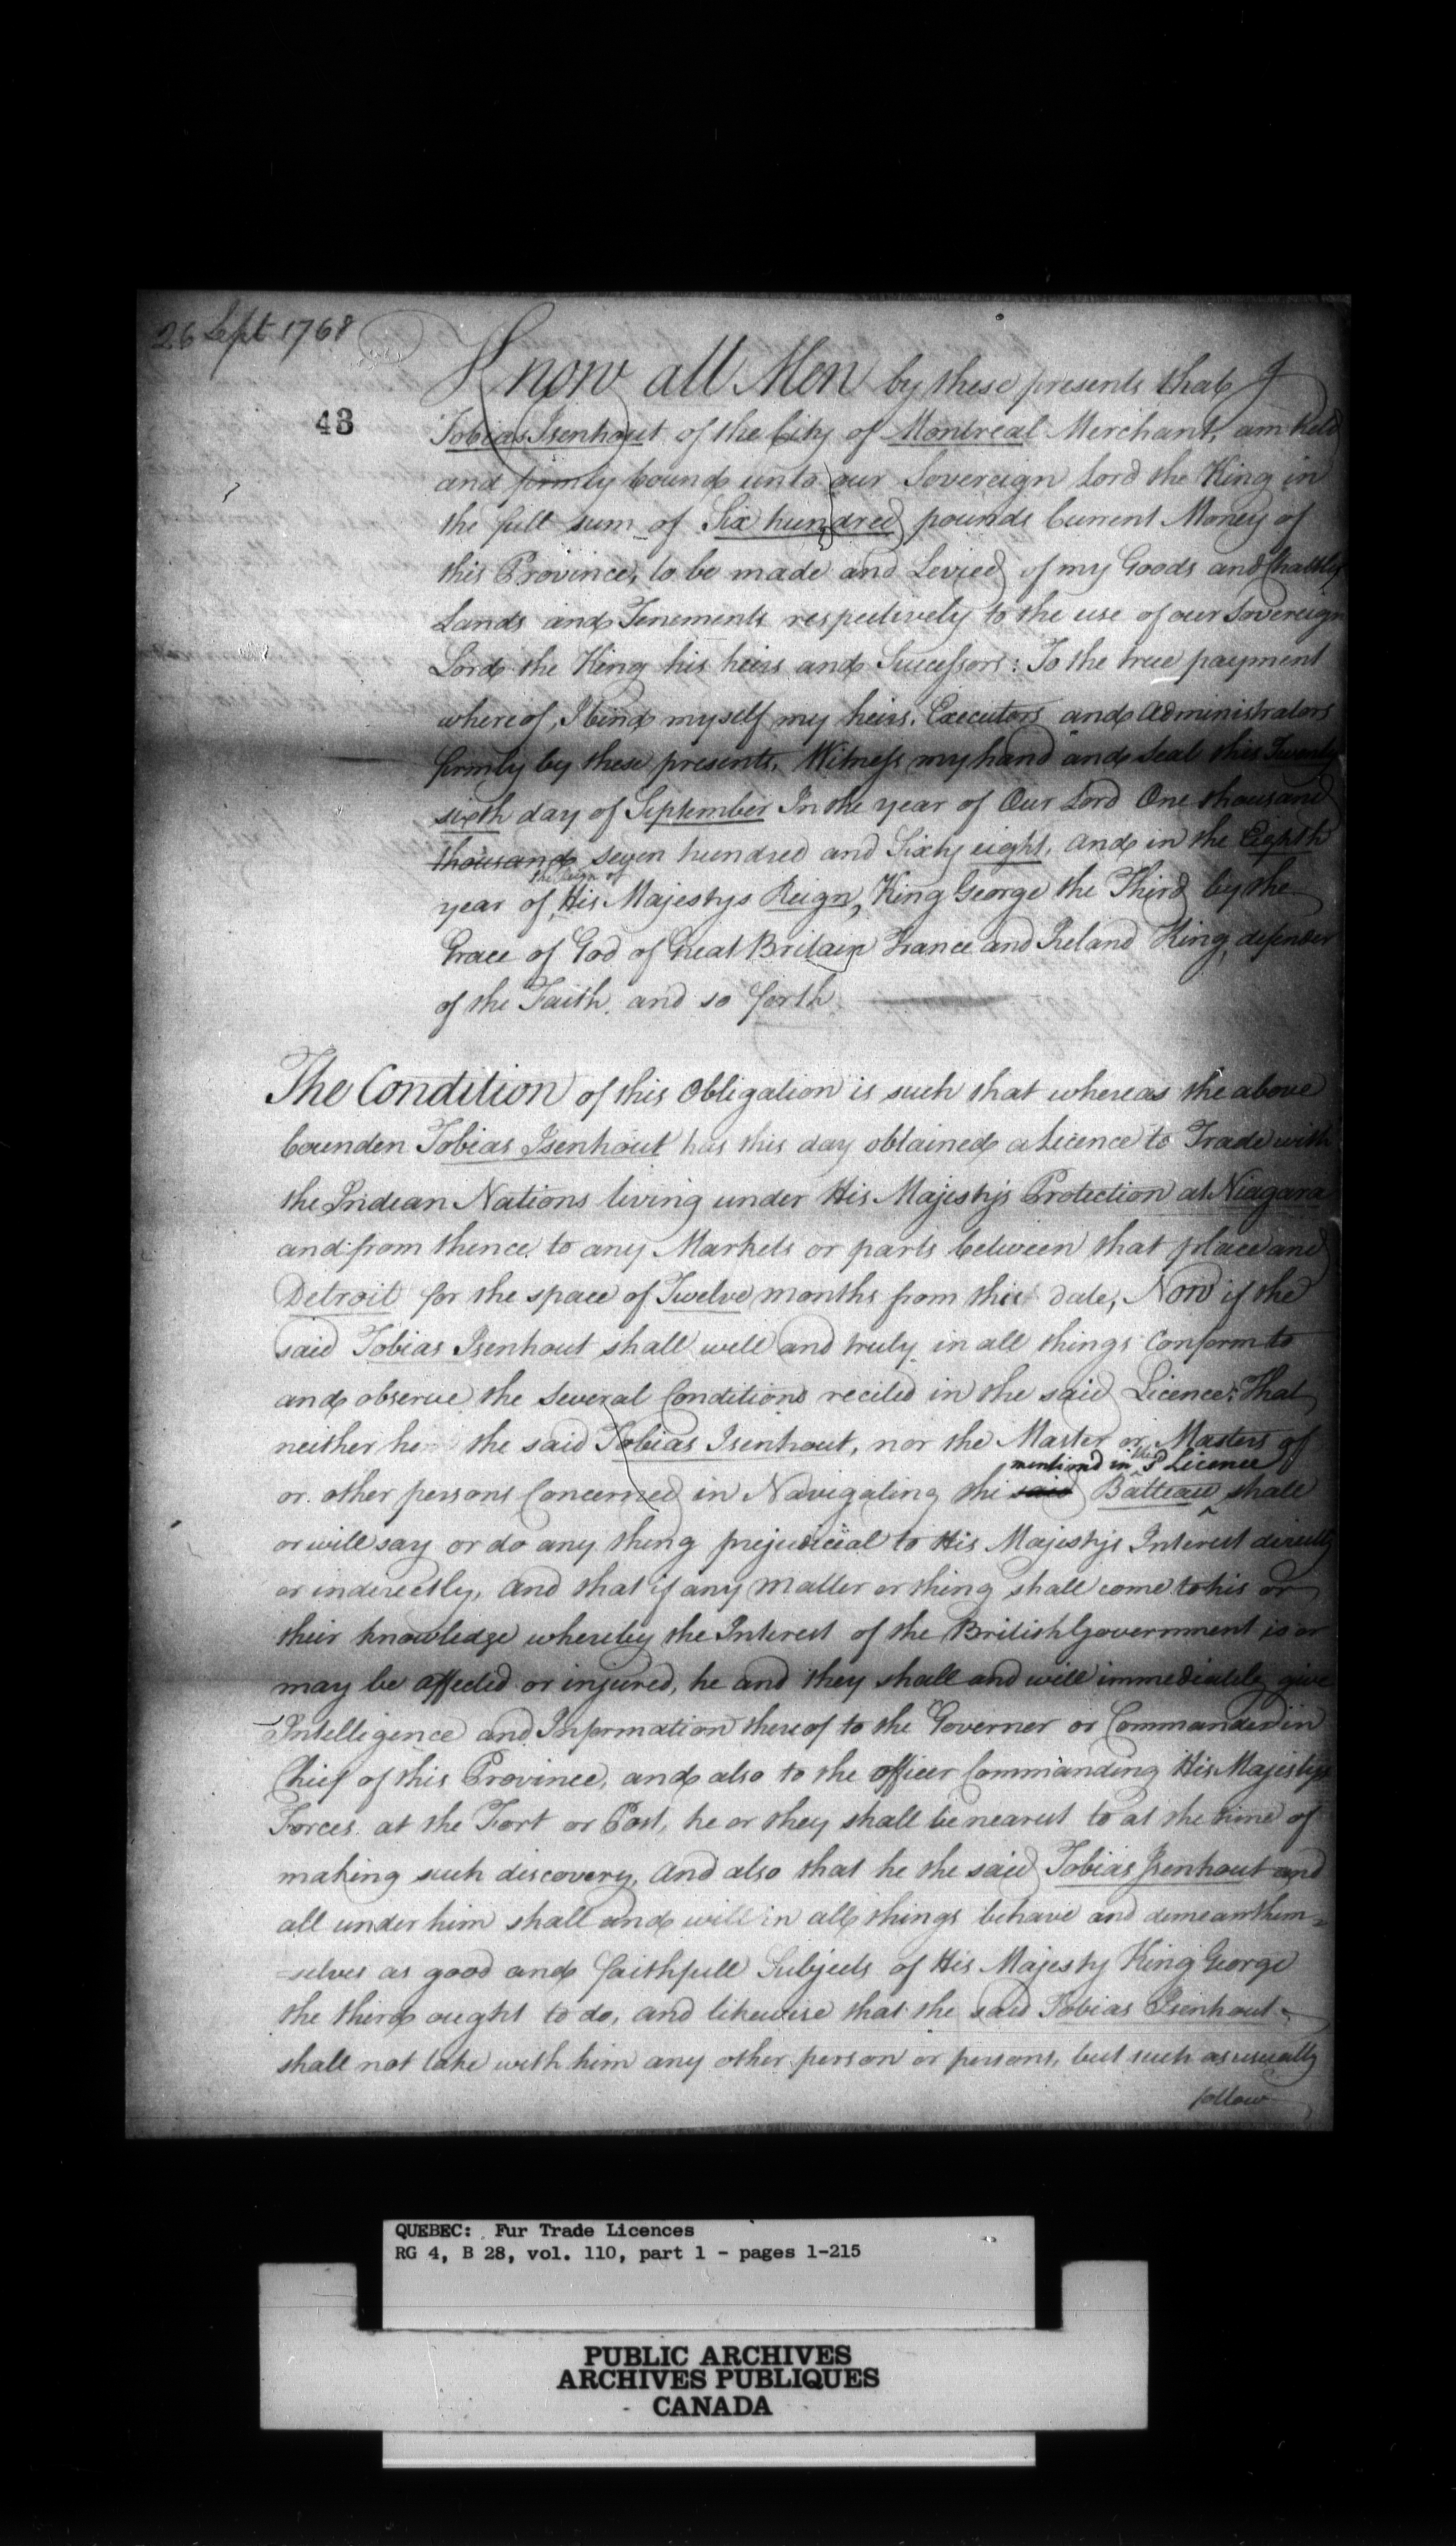 26 Sept 1768
43
Know all Men by these presents that I
Tobias Isenhout of the City of Montreal Merchant, am held
and firmly bound unto our Sovereign Lord the King in
the full sum of Six hundred pounds Current Money of
this Province, to be made and Levied of my Goods and Chattles
Lands and Tenements respectively to the use of our Sovereign
Lord the King his heirs and Successors: To the true payment
whereof, I bind myself my heirs, Executors and Administrators
firmly by these presents, Witness my hand and Seal this Twenty
sixth day of September In the year of Our Lord One thousand
thousand seven hundred and Sixty eight, and in the Eighth
the Reign of
year of His Majestys Reign, King George the Third by the
Grace of God of Great Britain France and Ireland King, defender
of the Faith, and so forth
The Condition of this Obligation is such that whereas the above
bounden Tobias Isenhout has this day obtained a Licence to Trade with
the Indean Nations living under His Majesty's Protection at Niagara
and from thence to any Markets or parts between that place and
Detroit for the space of Twelve months from this date, Now if the
said Tobias Isenhout shall well and truly in all things Conform to
and observe the several Conditions recited in the said Licence: That
neither he the said Tobias Isenhout, nor the Master or Masters of
mentiond in the sd Licence
or other persons Concerned in Navigating the said Batteau shall
or will say or do any thing prejudicial to His Majesty's Interest directly
or inderectly, and that if any matter or thing shall come to his or
their knowledge whereby the Interest of the British Government is or
may be affected or injured, he and they shall and will immediately give
Intelligence and Information thereof to the Governer or Commander in
Chief of this Province, and also to the officer Commanding His Majesty's
Forces at the Fort or Post, he or they shall be nearest to at the time of
making such discovery, and also that he the said Tobias Isenhout and
all under him shall and will in all things behave and demean them=
=selves as good and faithfull Subjects of His Majesty King George
the third ought to do, and likewise that the said Tobias Isenhout
shall not take with him any other person or persons, but such as usually
follow
QUEBEC: Fur Trade Licences
RG 4, B 28, vol. 110, part 1 - pages 1-215
PUBLIC ARCHIVES
ARCHIVES PUBLIQUES
CANADA